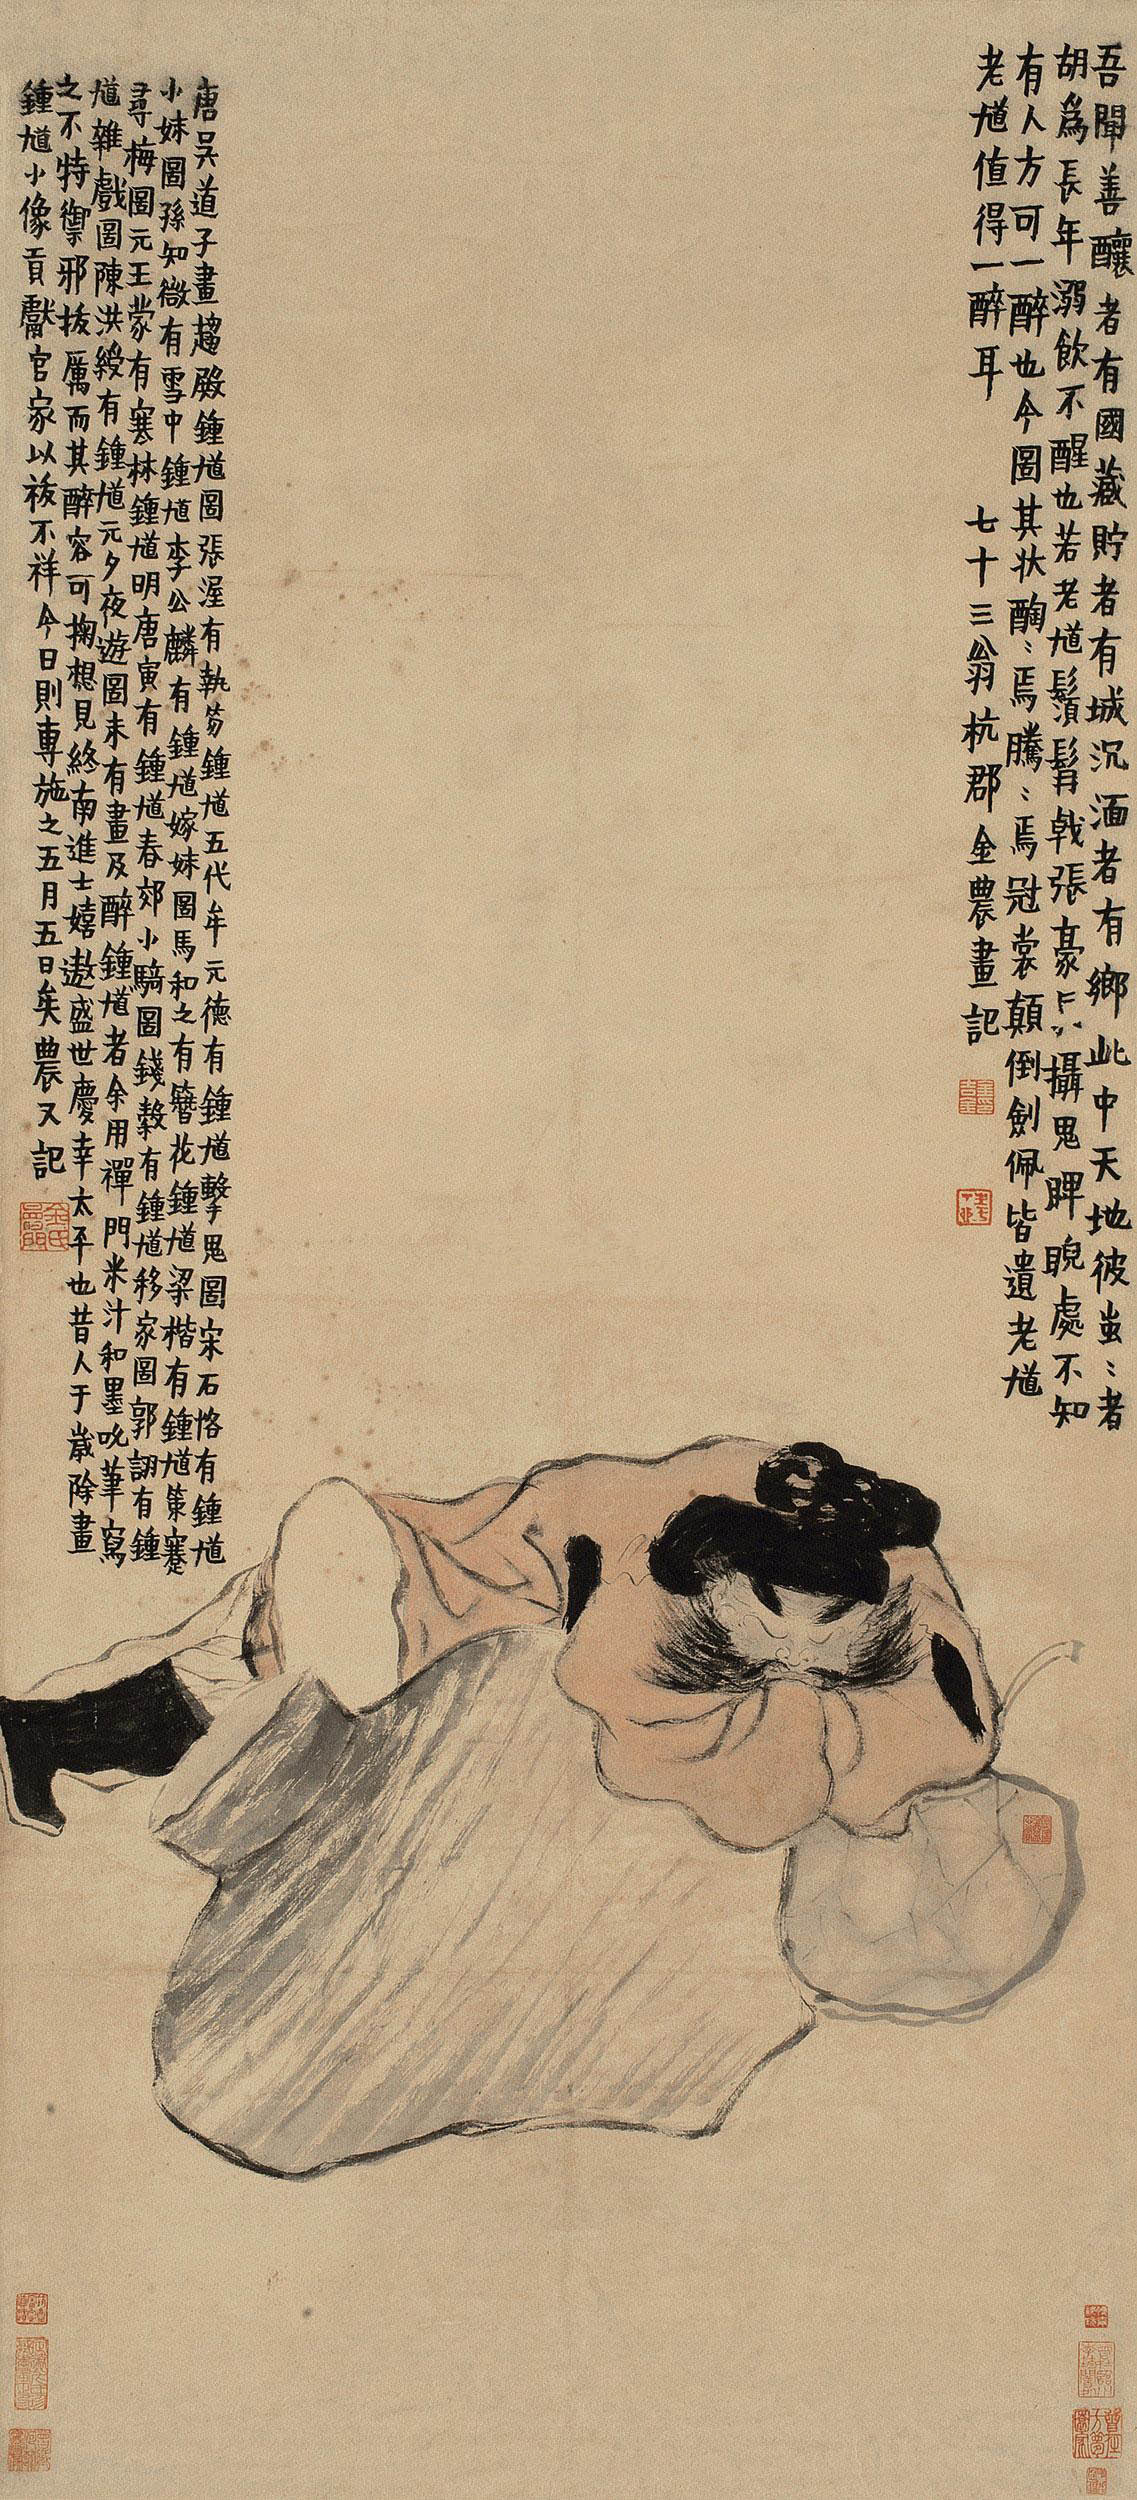 吾聞善釀者有國藏貯者有城沉湎者有鄉此中天地彼蚩〻者
胡為長年溺飲不醒也若老馗鬚髯戟張豪 攝鬼睥睨處不知
有人方可一醉也今圖其狀醄〻焉騰〻焉冠裳顛倒劍佩皆遺老馗
老馗值得一醉耳　七十三翁杭郡金農畫記
唐吳道子畫趨殿鍾馗圖張渥有執笏鍾馗五代牟元德有鍾馗擊鬼圖宋石恪有鍾馗
小妹圖孫知微有雪中鍾馗李公麟有鍾馗嫁妹圖馬和之有簪花鍾馗梁楷有鍾馗策蹇
尋梅圖元王蒙有寒林鍾馗明唐寅有鍾馗春郊小騎圖錢穀有鍾馗移家圖郭詡有鍾
馗雜戲圖陳洪綬有鍾馗元夕夜遊圖未有畫及醉鍾馗者余用禪門米汁和墨吮筆寫
之不特禦邪拔厲而其醉容可掬想見終南進士嬉遨盛世慶幸太平也昔人于歲除畫
鍾馗小像貢獻官家以祓不祥今日則專施之五月五日矣農又記